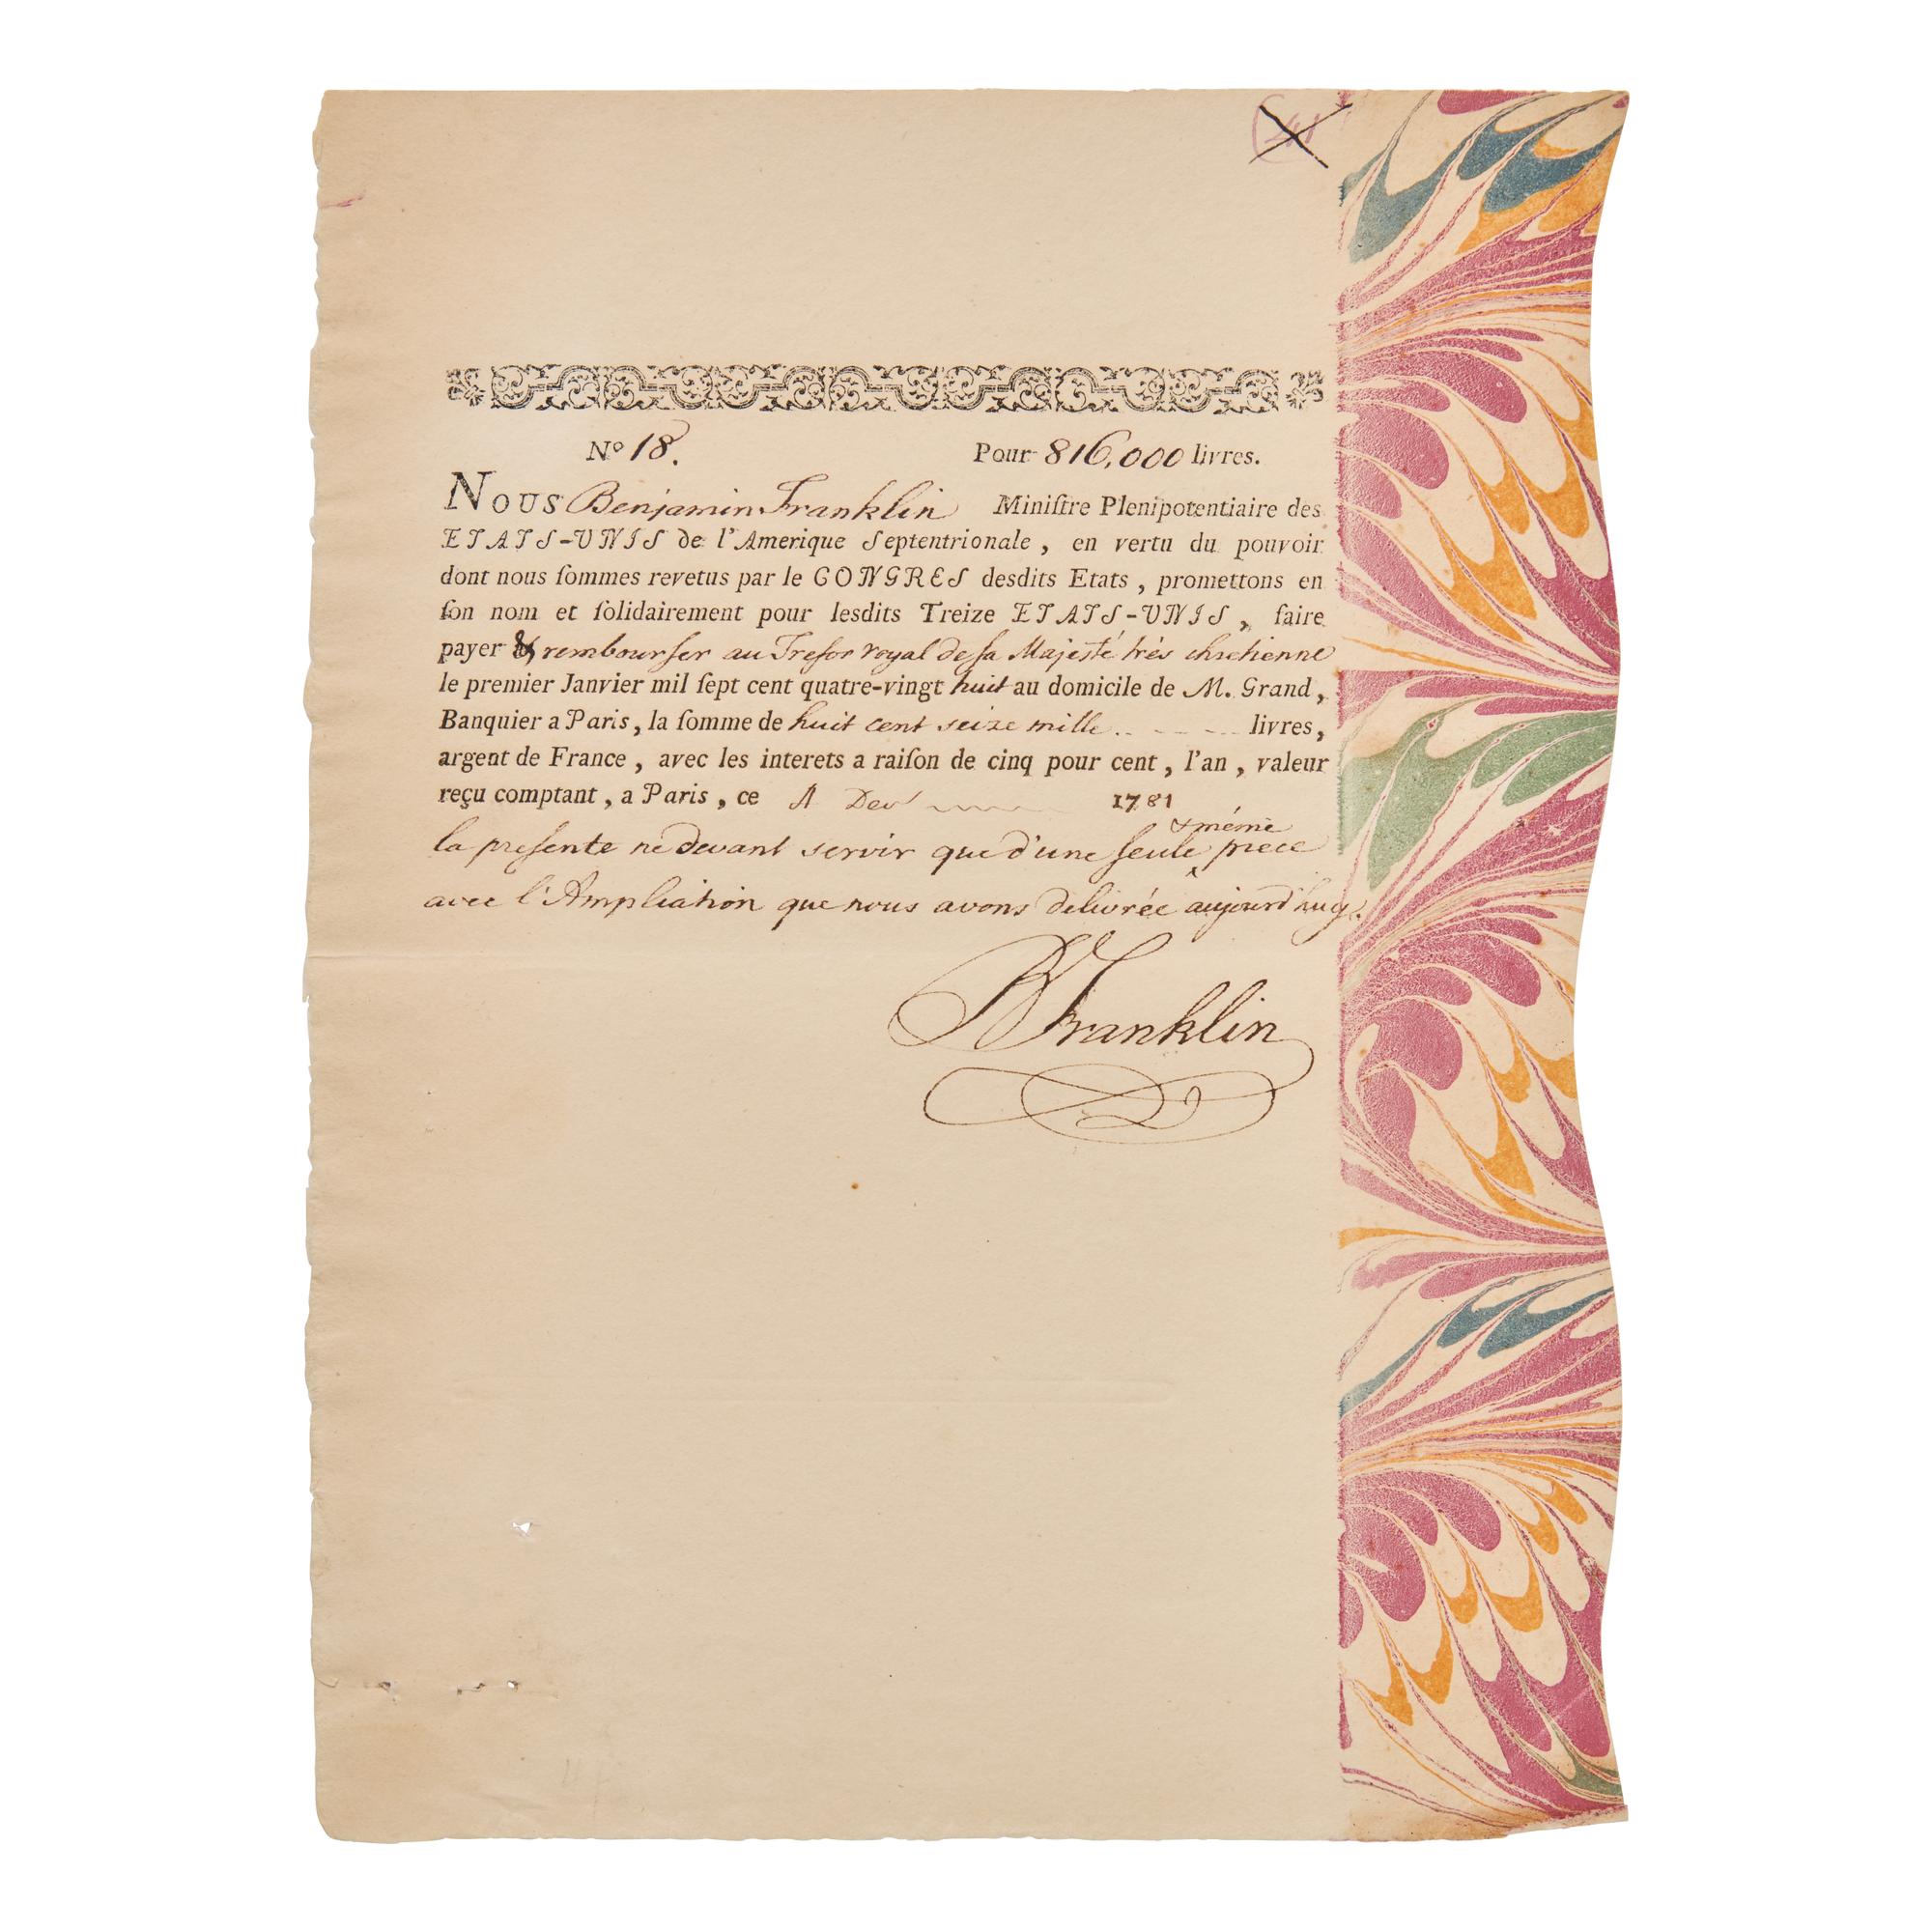 Nº 18. Pour 816,000 livres.
Nous Benjamin Franklin Miniſtre Plenipotentiaire des
ETATS-UNIS de l'Amerique Septentrionale, en vertu du pouvoir
dont nous ſommes revetus par le CONGRES desdits Etats, promettons en
ſon nom et ſolidairement pour lesdits Treize ETATS-UNIS, faire
payer & rembourſer au Treſor royal de ſa Majesté trés chretienne
le premier Janvier mil ſept cent quatre-vingt huit au domicile de M. Grand,
Banquier a Paris, la ſomme de huit cent seize mille livres,
argent de France, avec les interets a raiſon de cinq pour cent, l'an, valeur
reçu comptant, a Paris, ce 1781
& méme
la preſente ne devant servir que d'une ſeule piece
avec l'Ampliation que nous avons delivrée aujourd'huy.
B Franklin